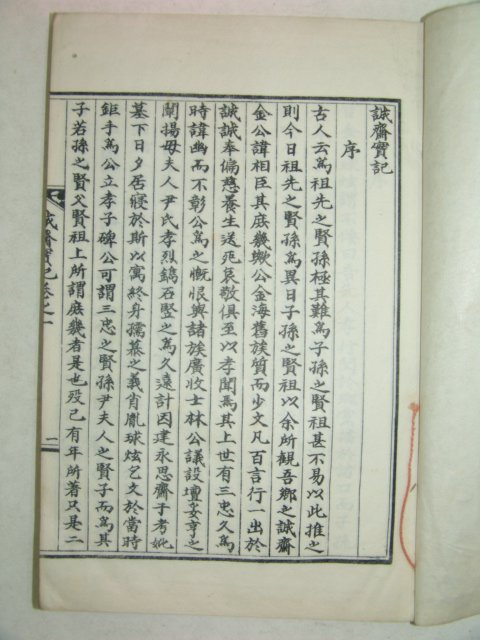 誠齋實記
序
古人云爲祖先之賢孫極其難爲子孫之賢祖甚不易以此推之
則今日祖先之賢孫爲異日子孫之賢祖以余所觀吾鄉之誠齋
金公諱相臣其庶幾歟公金海舊族質而少文凡百言行一出於
誠誠奉偏慈養生送死哀敬俱至以孝聞焉其上世有三忠久爲
時諱幽而不彰公爲之慨恨與諸族廣收士林公議設壇妥享之
闡揚毋夫人尹氏孝烈鐫石竪之爲久遠計因建永思齋于考妣
墓下日夕居寢於斯以寓終身孺慕之義肖胤球炫乞文於當時
鉅手爲公立孝子碑公可謂三忠之賢孫尹夫人之賢子而爲其
子若孫之賢父賢祖上所謂庶幾者是也歿已有年所著只是二
誠齋實記卷之一
一